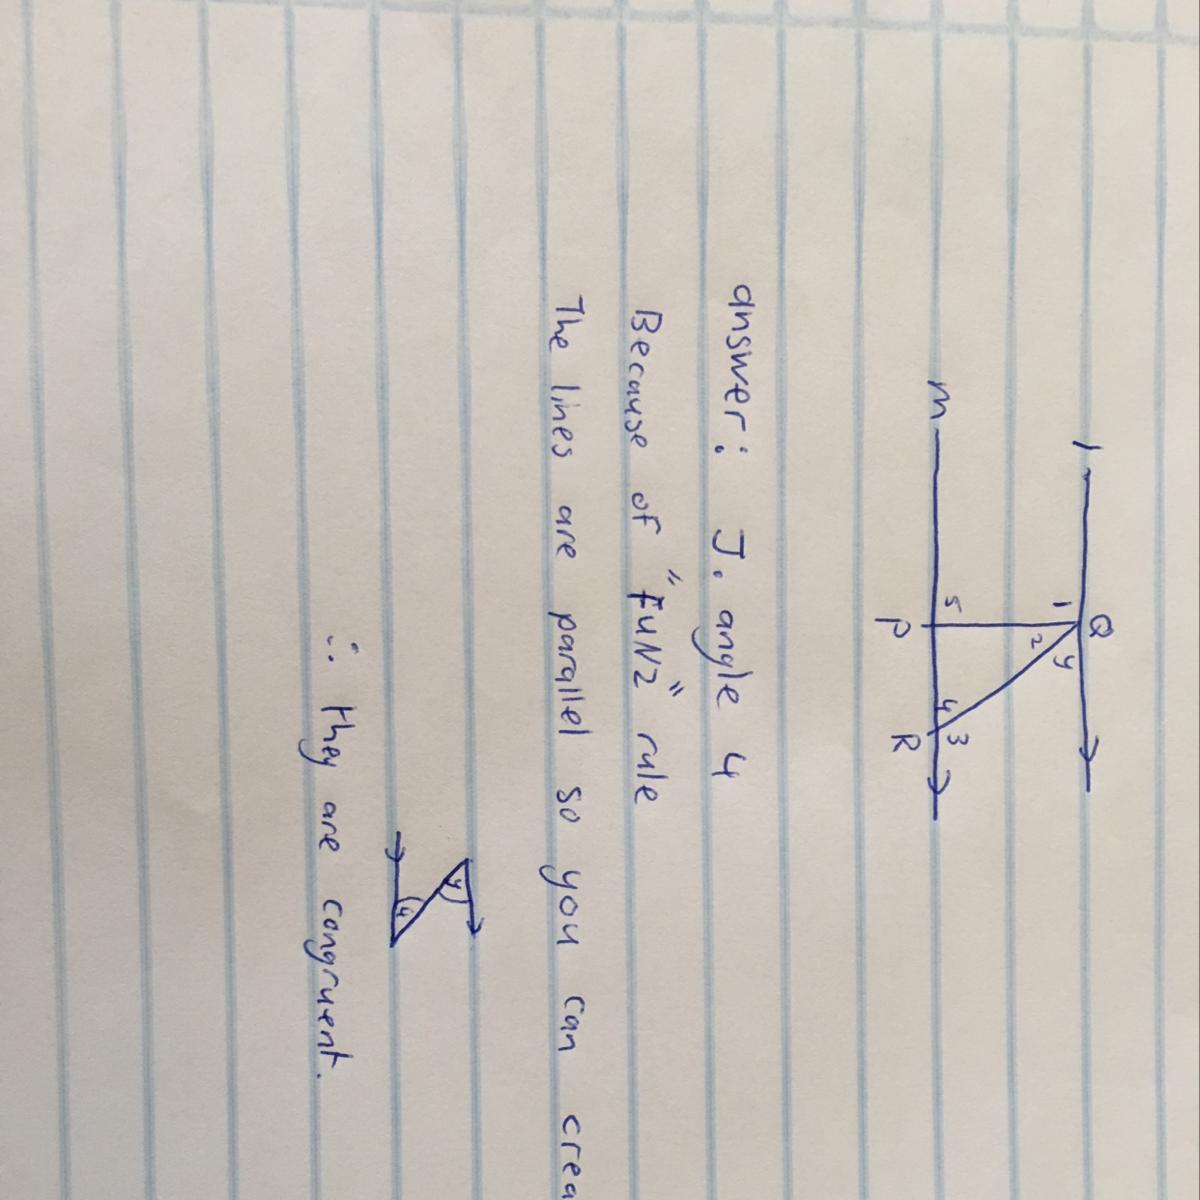 l Q
1 y
2
5 4 3
m P R
answer: J. angle 4
Because of "FUNZ" rule
The lines are parallel so you can
y
4
∴ they are congruent.